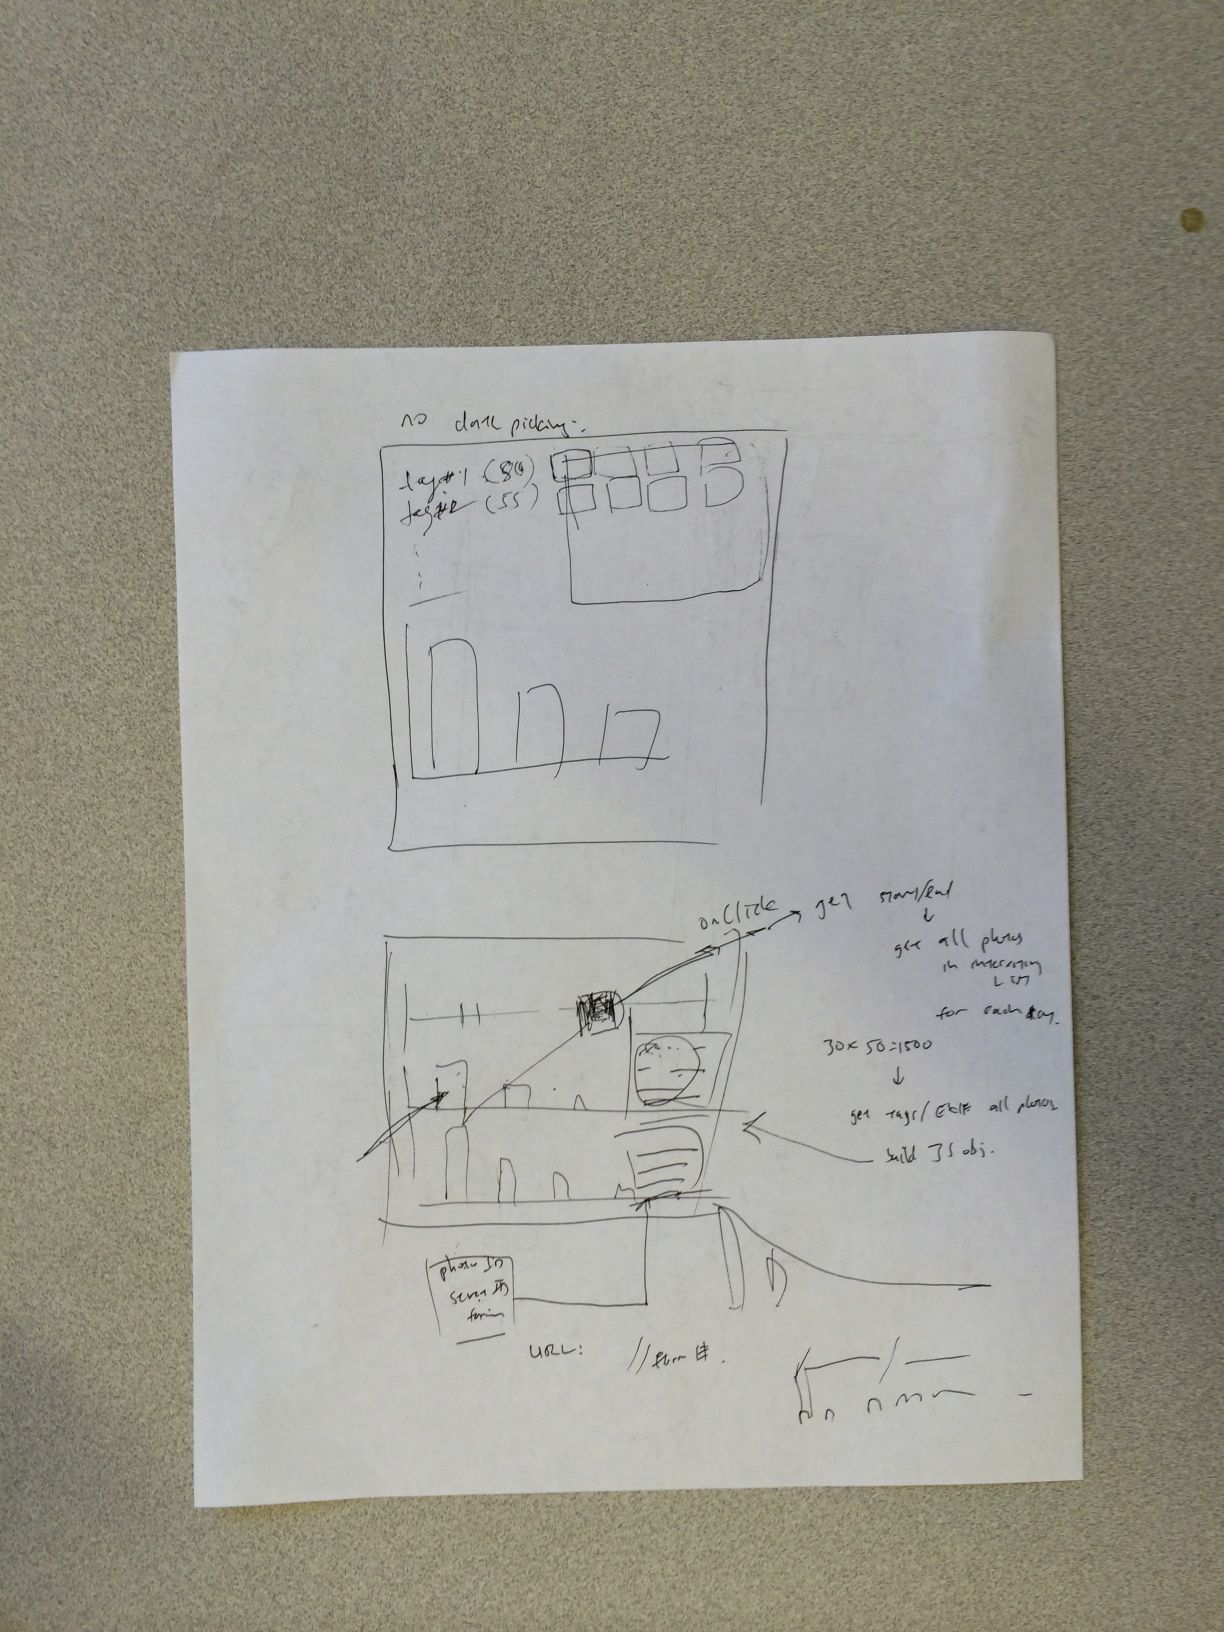 no date picking.
tag#1 (80)
tag#2 (55)
onClick → get start/end
get all photos
in interesting
list
for each day.
30 x 50 = 1500
get tags/EXIF all photos
build JS obj.
photo ID
server ID
farm
URL: //farm #.